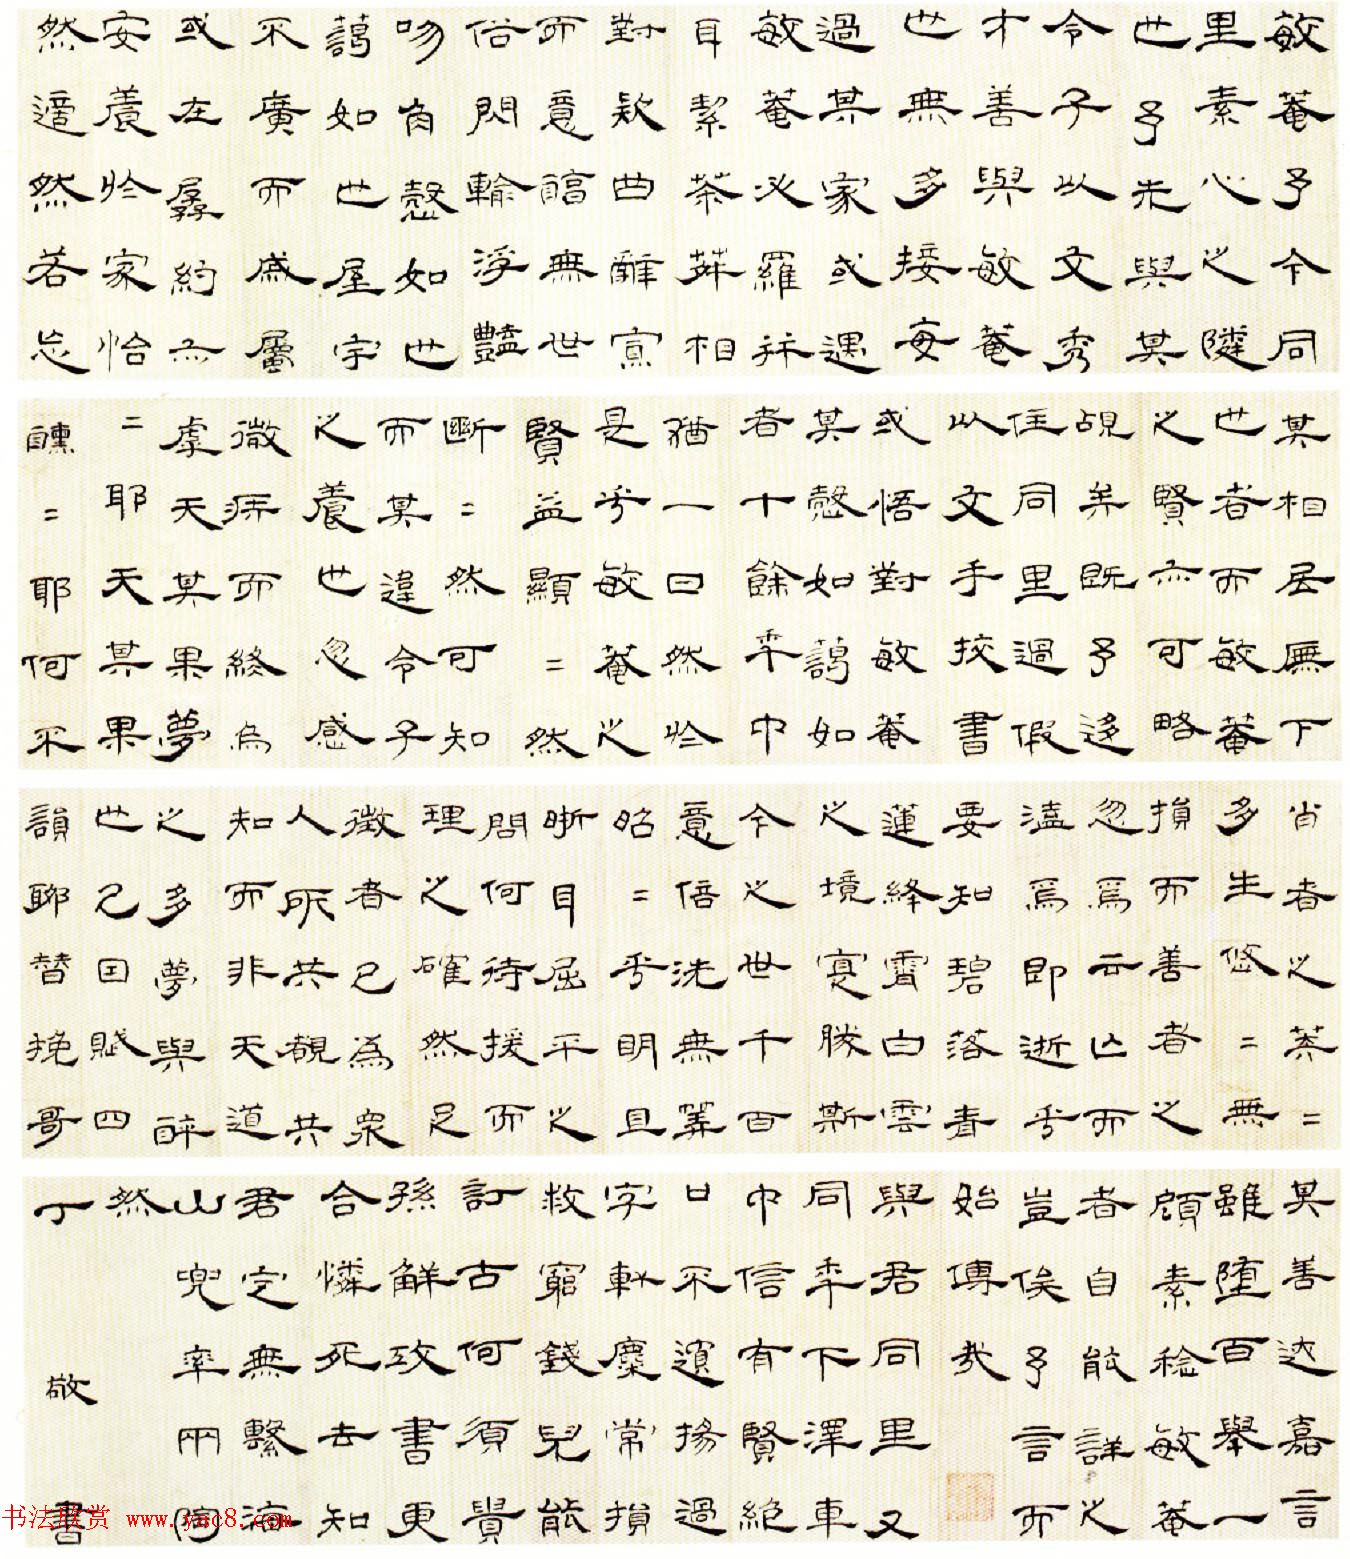 敏菴予今同
里素心之隣
也予未與其
令子以文秀
才善與敏菴
也無多接每
過某家或遇
敏菴必羅並
耳潔茶荈相
對款曲辭寡
而意醕無世
俗閃輸浮豔
吻肯愨如也
藹如也屋宇
不廣而戚屬
或在孱約亦
安養於家怡
然適然若忘
其相居廡下
也者而敏菴
之賢亦可略
覘矣旣予迻
住同里過假
以文手挍書
或悟對敏菴
某愨如藹如
者十餘年中
猶一日然於
是乎敏菴之
賢益顯=然
斷=然可知
而某違令子
之養也忽感
微疾而終烏
虖天某果夢
=耶天某果
醺=耶何不
肖者之棼=
多生悠=無
損而善者之
忽焉云亡而
溘焉卽逝乎
要知碧落青
蓮絳霄白雲
之境寔勝斯
今之世千百
意倍洗無算
昭=乎明且
晣耳屈平之
問何待援而
理之確然足
徵者已為衆
人所共覩共
知而非天道
之多夢與醉
也已因賦四
韻聊替挽哥
其善迖嘉言
雖堕百舉一
頋素稔敏菴
者自能詳之
豈俟予言而
始傳哉
與君同里又
同年下澤車
中信有賢絶
口不湏揚過
字軒麋常損
救窮錢兒能
訂古何須貴
孫解攻書更
合憐死去知
君定無繫海
山兜率兩同
然
丁 敬 書
书法欣赏 www.yac8.com